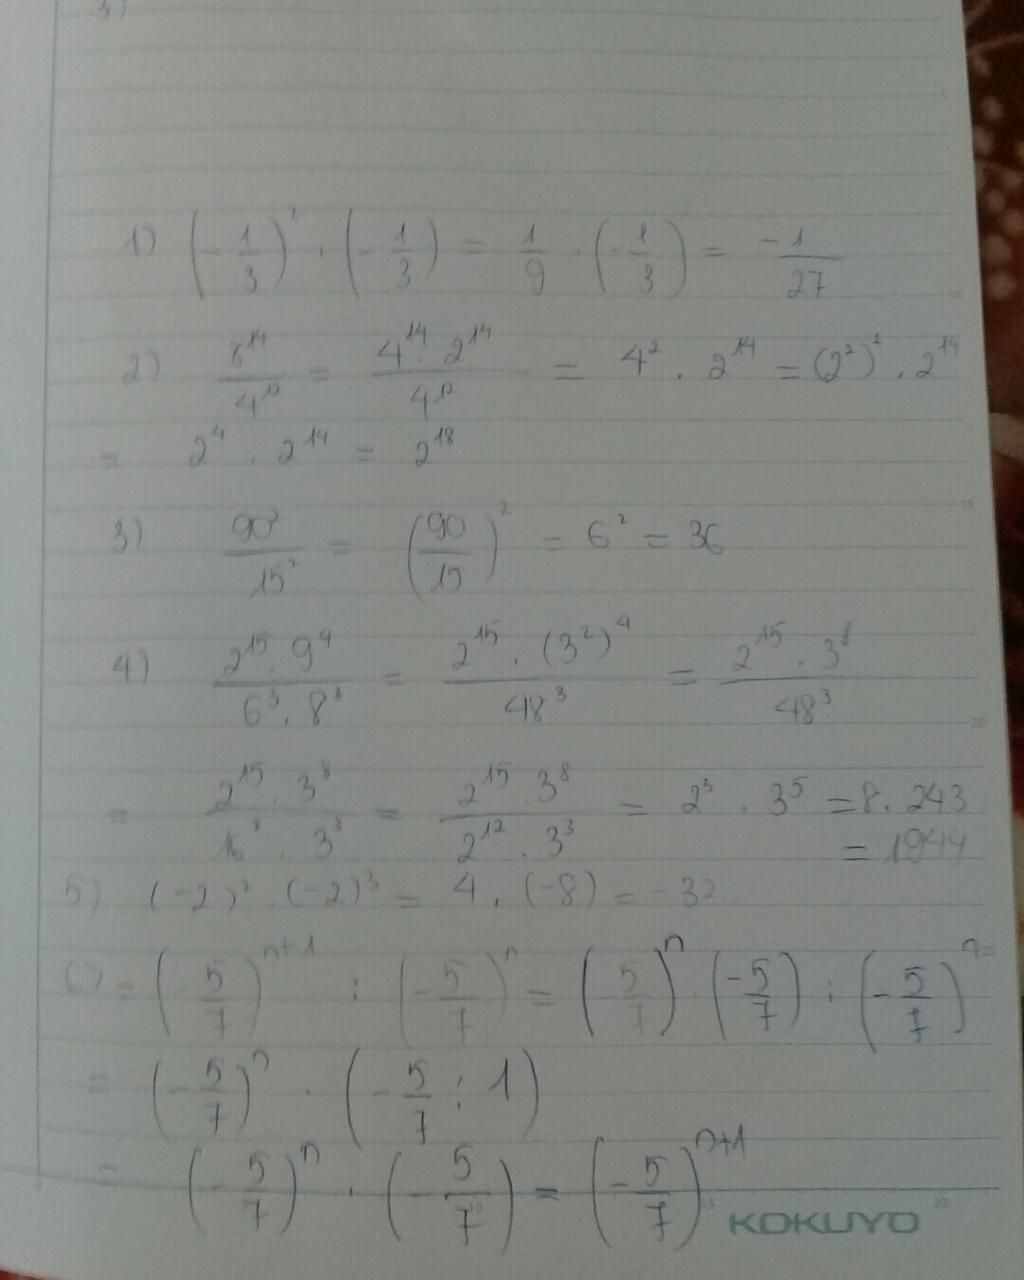 1) (-1/3)² · (-1/3) = 1/9 · (-1/3) = -1/27
2) 8¹⁴/4¹² = 4¹⁴ · 2¹⁴/4¹² = 4² · 2¹⁴ = (2²)² · 2¹⁴
= 2⁴ · 2¹⁴ = 2¹⁸
3) 90²/15² = (90/15)² = 6² = 36
4) 2¹⁵ · 9⁴/6³ · 8³ = 2¹⁵ · (3²)⁴/48³ = 2¹⁵ · 3⁸/48³
= 2¹⁵ · 3⁸/16³ · 3³ = 2¹⁵ · 3⁸/2¹² · 3³ = 2³ · 3⁵ = 8 · 243
= 1944
5) (-2)² · (-2)³ = 4 · (-8) = -32
6) = (-5/7)ⁿ⁺¹ : (-5/7)ⁿ = (-5/7)ⁿ (-5/7) : (-5/7)ⁿ
= (-5/7)ⁿ · (-5/7 : 1)
= (-5/7)ⁿ · (-5/7) = (-5/7)ⁿ⁺¹
KOKUYO